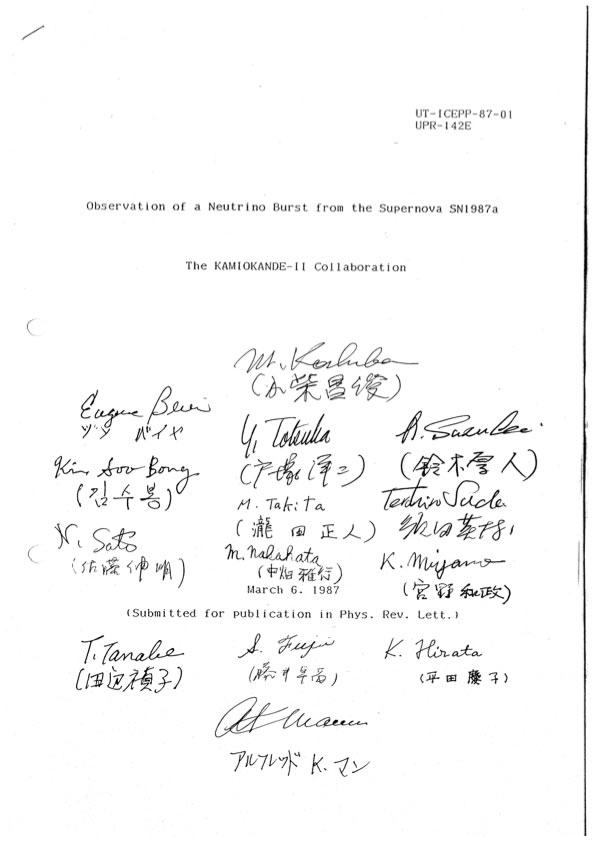 UT-ICEPP-87-01
UPR-142E
Observation of a Neutrino Burst from the Supernova SN1987a
The KAMIOKANDE-II Collaboration
M. Koshiba
(小柴昌俊)
Eugene Beier
バイヤ
Y. Totsuka
(戸塚洋二)
A. Suzuki
(鈴木厚人)
Kim Soo Bong
(김수봉)
M. Takita
(瀧田正人)
Teruhiro Suda
須田英博
N. Sato
(佐藤伸明)
M. Nakahata
(中畑雅行)
K. Miyano
(宮野和政)
March 6, 1987
(Submitted for publication in Phys. Rev. Lett.)
T. Tanabe
(田辺禎子)
S. Fujii
K. Hirata
(平田慶子)
AK Mann
アルフレッド K. マン